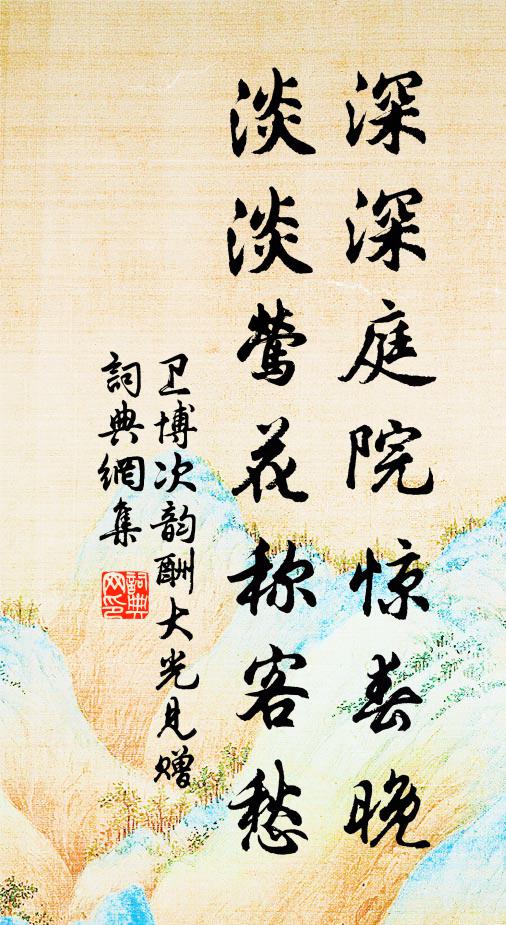 深深庭院惊春晚
淡淡莺花称客愁
卫博次韵酬大光见赠
詞典網集
詞典网印